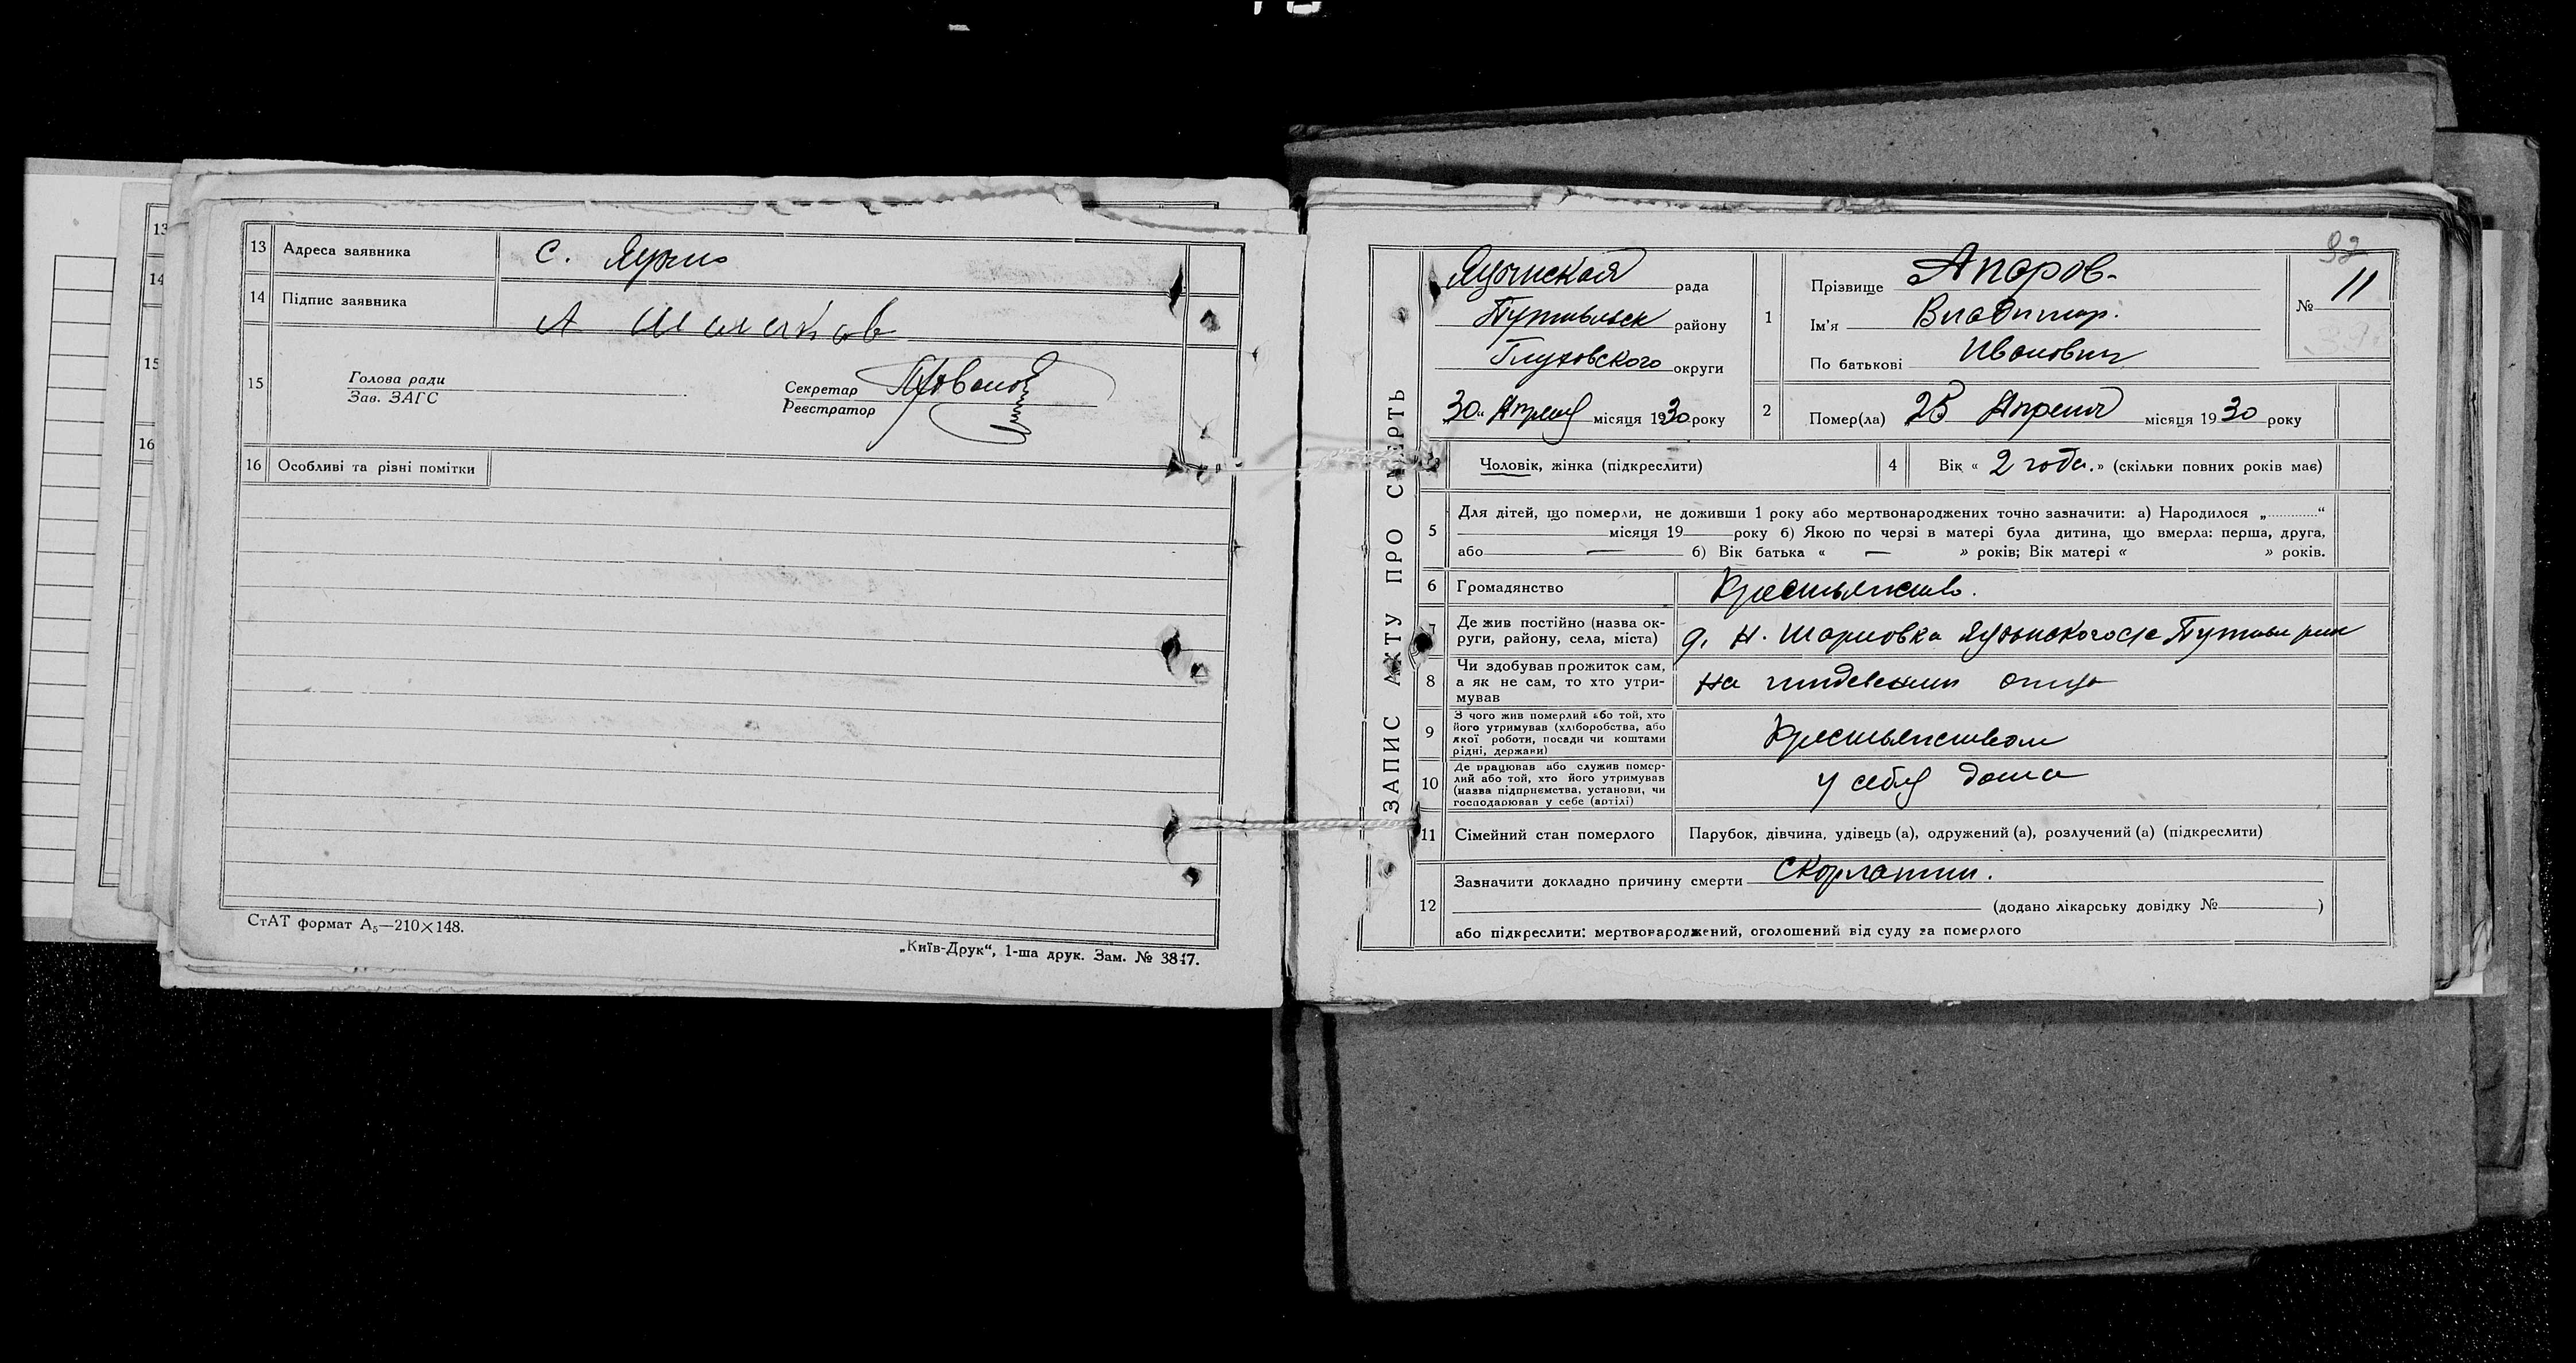 13 Адреса заявника с.
14 Підпис заявника А
15 Голова ради
Зав. ЗАГС
Секретар
Реєстратор
16 Особливі та різні помітки
СтАТ формат А5—210×148.
„Київ-Друк“, 1-ша друк. Зам. № 3847.
13
14
15
16
ЗАПИС АКТУ ПРО СМЕРТЬ
рада
Путивльск району
Глуховского округи
„30“ Апреля місяця 1930 року
92
№ 11
1 Прізвище Апоров
Ім'я Владимир.
По батькові Иванович
2 Помер(ла) „25 Апреля місяця 1930 року
3 Чоловік, жінка (підкреслити)
4 Вік « 2 года. » (скільки повних років має)
5 Для дітей, що померли, не доживши 1 року або мертвонароджених точно зазначити: а) Народилося „............“
місяця 19 року б) Якою по черзі в матері була дитина, що вмерла: перша, друга,
або — б) Вік батька « — » років; Вік матері « » років.
6 Громадянство Крестьянство.
7 Де жив постійно (назва ок-
руги, району, села, міста) д. Н. Шарповка
8 Чи здобував прожиток сам,
а як не сам, то хто утри-
мував На иждевении отца
9 З чого жив померлий або той, хто
його утримував (хліборобства, або
якої роботи, посади чи коштами
рідні, держави) Крестьянством
10 Де працював або служив помер-
лий або той, хто його утримував
(назва підприємства, установи, чи
господарював у себе (артілі) у себя дома
11 Сімейний стан померлого Парубок, дівчина, удівець (а), одружений (а), розлучений (а) (підкреслити)
12 Зазначити докладно причину смерти Скорлатин.
(додано лікарську довідку № )
або підкреслити: мертвонароджений, оголошений від суду за померлого